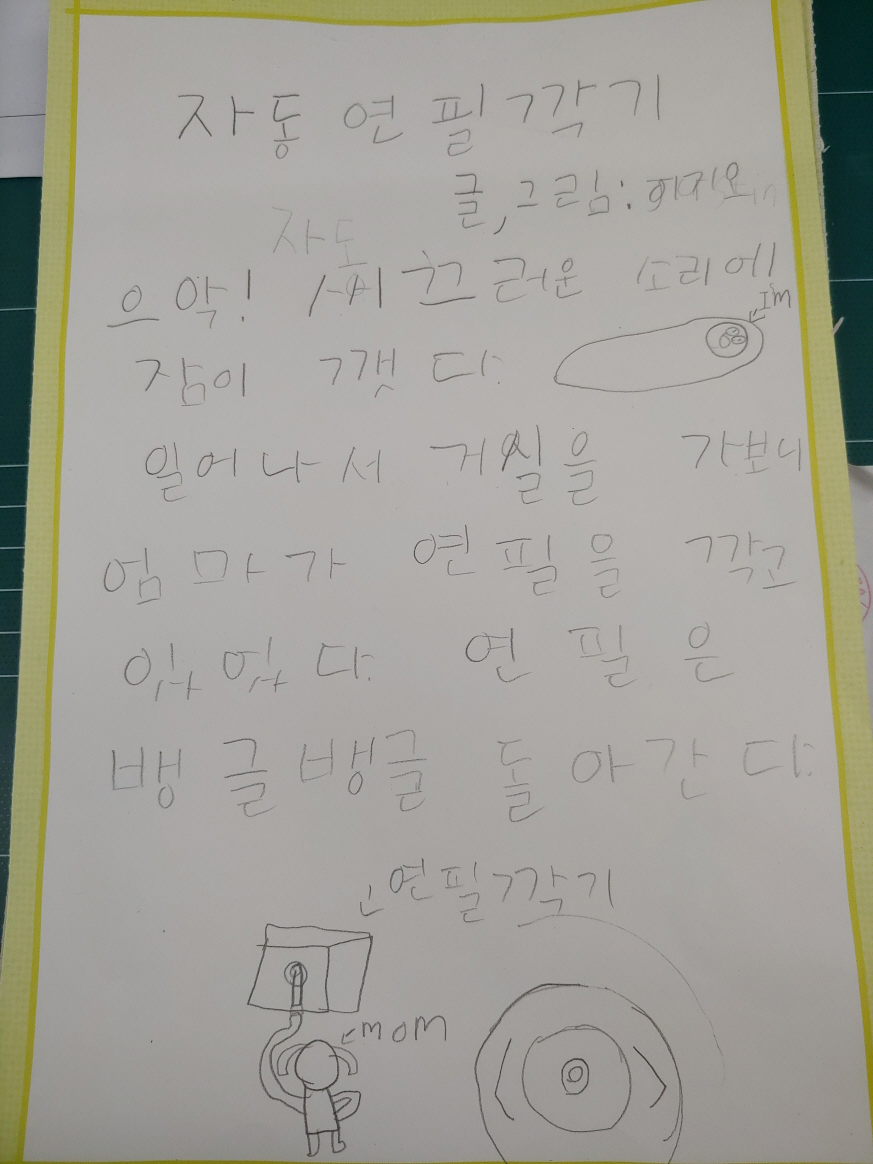 자동 연필깍기
글, 그림:
자도
으악! 시끄러운 소리에
I'm
잠이 깻다.
일어나서 거실을 가보니
엄마가 연필을 깍고
있었다. 연필은
뱅글뱅글 돌아간다.
연필깍기
mom